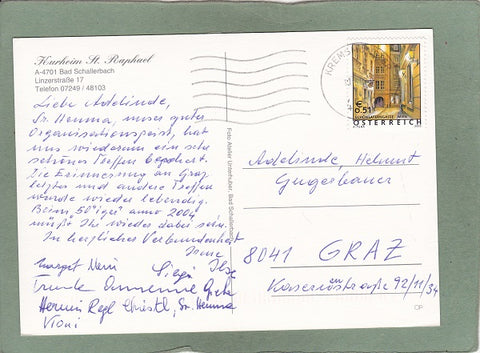 Kurheim St. Raphael
A-4701 Bad Schallerbach
Linzerstraße 17
Telefon 07249 / 48103
Liebe Adelinde,
Sr. Hemma, unser guter
Organisationsgeist, hat
uns wiederum ein sehr
schönes Treffen beschert.
Die Erinnerung an Graz
letztes und andere Treffen
wurde wieder lebendig.
Beim 50igsten anno 2004
müßt Ihr wieder dabei sein.
In herzlicher Verbundenheit
Ilse
Margot Sieglinde
Traude Annemie Greta
Hermi Christl, Sr. Hemma
Vroni
Foto: Atelier Unterhuber, Bad Schallerbach
KREMS
€ 0.51
ÖSTERREICH
Adelinde, Helmut
Gugerbauer
8041 GRAZ
92/11/34